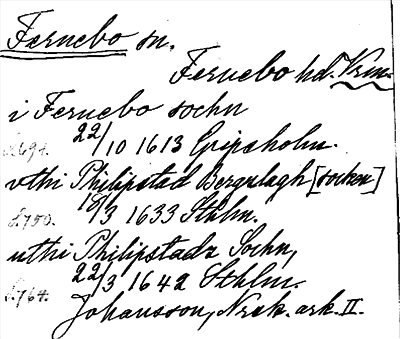 Fernebo sn.
Fernebo hd. Vrm.
i Fernebo sochn
f. 694. 22/10 1613 Gripsholm.
vthi Philipstad Bergzlagh [socken]
f. 750. 18/3 1633 Sthlm.
uthi Philpstadz Sochn,
f. 764. 22/3 1642 Sthlm.
Johansson, Nrak. ark. II.